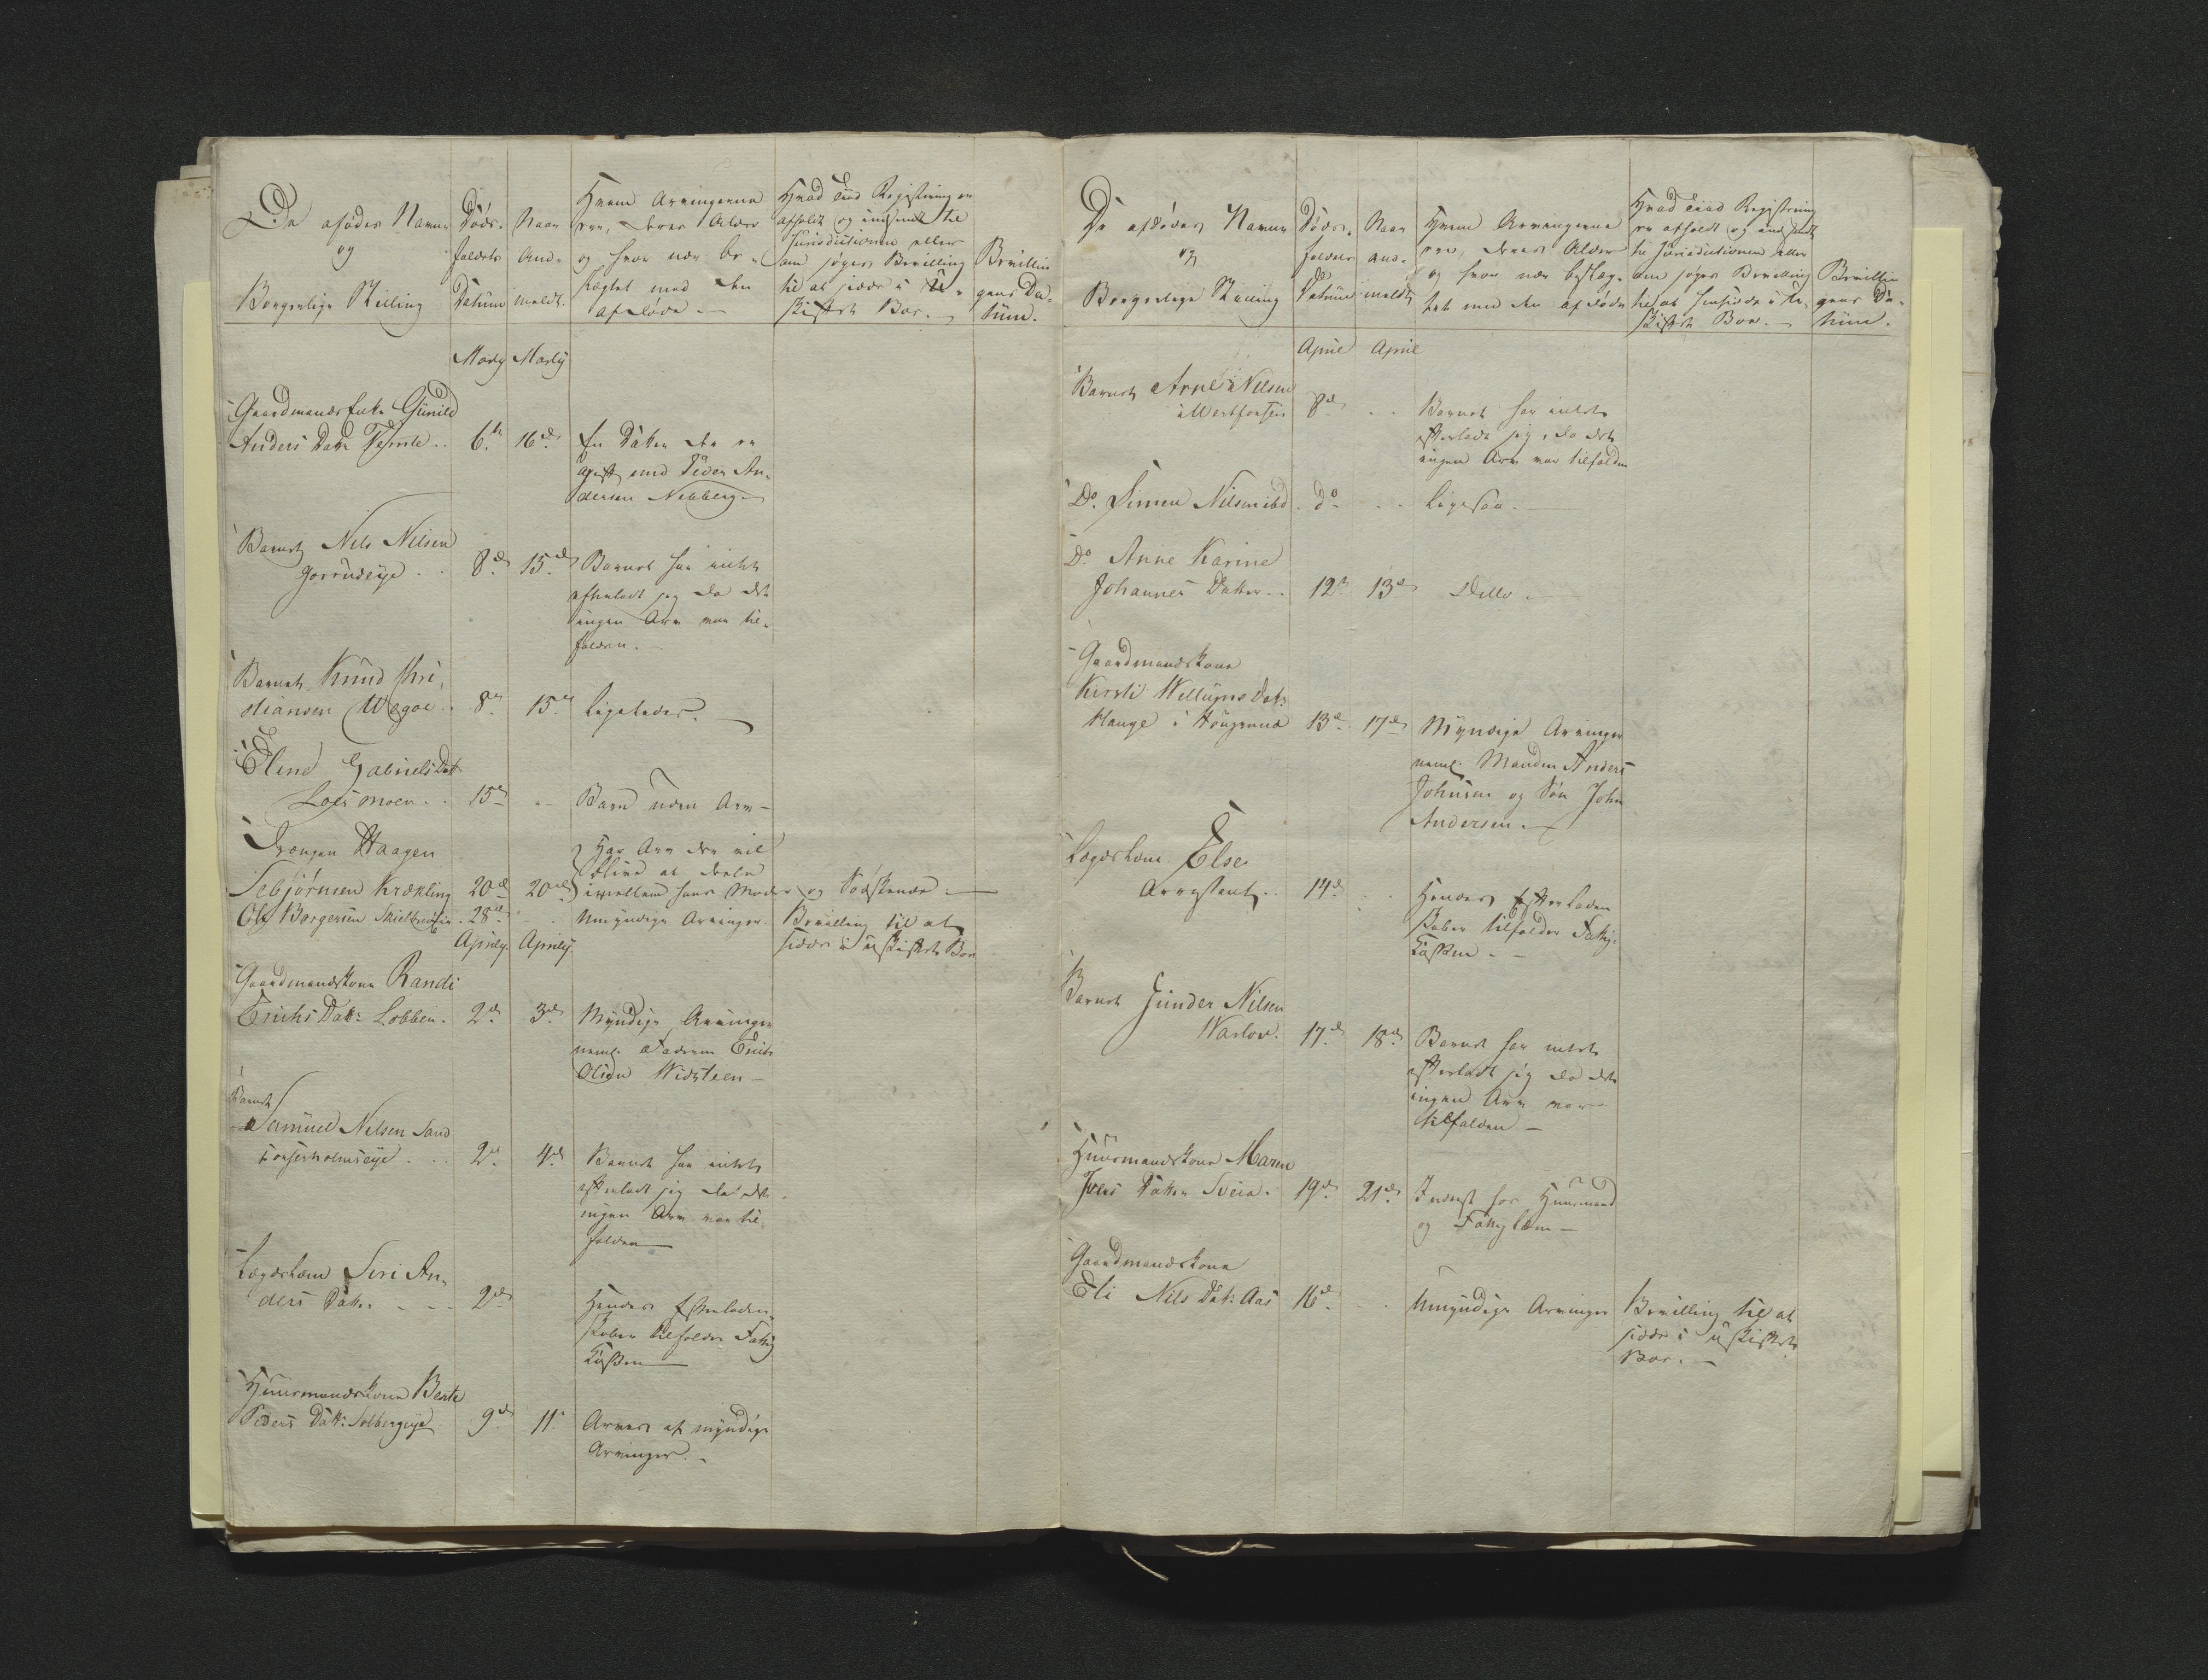 De afdødes Navne
og
Borgerlige Stilling
Døds-
faldets
Datum
Naar
and-
meldt.
Hvem Arvingerne
ere, deres Alder
og hvor nær be-
slægtet med den
afdøde
Hvad Tiid Registering er
afholdt og indsendt til
Jurisdictionen eller
om søges Bevilling
til at sidde i u-
skiftet Boe.
Bevillin-
gens Da-
tum.
Marty Marty
Gaardmands Enke Gunild
Anders Datter 6. 16de En Datter der er
gift med Peder An-
dersen Nebberg
Barnet Nils Nilsen
Gorrudeye 8de 15de Barnet har intet
efterladt sig da det
ingen Arv var til-
falden.
Barnet Knud Chri-
stiansen 8de 15de Ligeledes.
Elene Gabriels Datt
Loesmoen 15de Barn uden Arv
Drengen Haagen
Sebjørnsen Krækling 20de 20de Har Arv der vil
blive at deele
imellem hans Moder og Sødskende
Ole Borgersen 28de Umyndige Arvinger. Bevilling til at
sidde i uskiftet Boe
Aprily Aprily
Gaardmandskone Randi
Erichs Datt: Lobben. 2de 3de Myndige Arvinger
neml. Faderen Erich
Olsen Widsteen
Barnet
Samuel Nilsen Sand
2de 4de Barnet har intet
efterladt sig da det
ingen Arv var til-
falden
Lægdslem Siri An-
ders Datter 2de Hendes Efterladen-
skaber tilfalder Fattig
Kassen
Huusmandskone Berte
Peders Datt: Solbergeye 9de 11. Arves af myndige
Arvinger.
De afdødes Navne
og
Borgerlige Stilling
Døds-
faldets
Datum
Naar
and-
meldt
Hvem Arvingerne
ere, deres Alder
og hvor nær beslæg-
tet med den afdøde
Hvad Tiid Registering
er afholdt og indsendt
til Jurisdictionen eller
om søges Bevilling
til at hensidde i u-
skiftet Boe.
Bevillin-
gens Da-
tum.
April April
Barnet Arne Nilsen
i Vestfossen 8de Barnet har intet
efterladt sig, da det
ingen Arv var tilfalden
Do. Simen Nilsen ibd. do Ligesaa.
Do Anne Karine
Johannes Datter 12te 13de Ditto.
Gaardmandskone
Kirsti Dat:
Hauge i 13de 17de Myndige Arvinger
neml. Manden Anders
Johnsen og Søn John
Andersen.
Lægdslem Else
14de Hendes Efterladen
skaber tilfalder Fattig-
Kassen.
Barnet Gunder Nilsen
Warlov. 17de 18de Barnet har intet
efterladt sig da det
ingen Arv var
tilfalden
Huusmandskone Maren
Joens Datter 19de 21de Inderst hos Huusmand
og Fattiglem
Gaardmandskone
Eli Nils Dat: Aas 16de Umyndige Arvinger Bevilling til at
sidde i uskiftet
Boe.